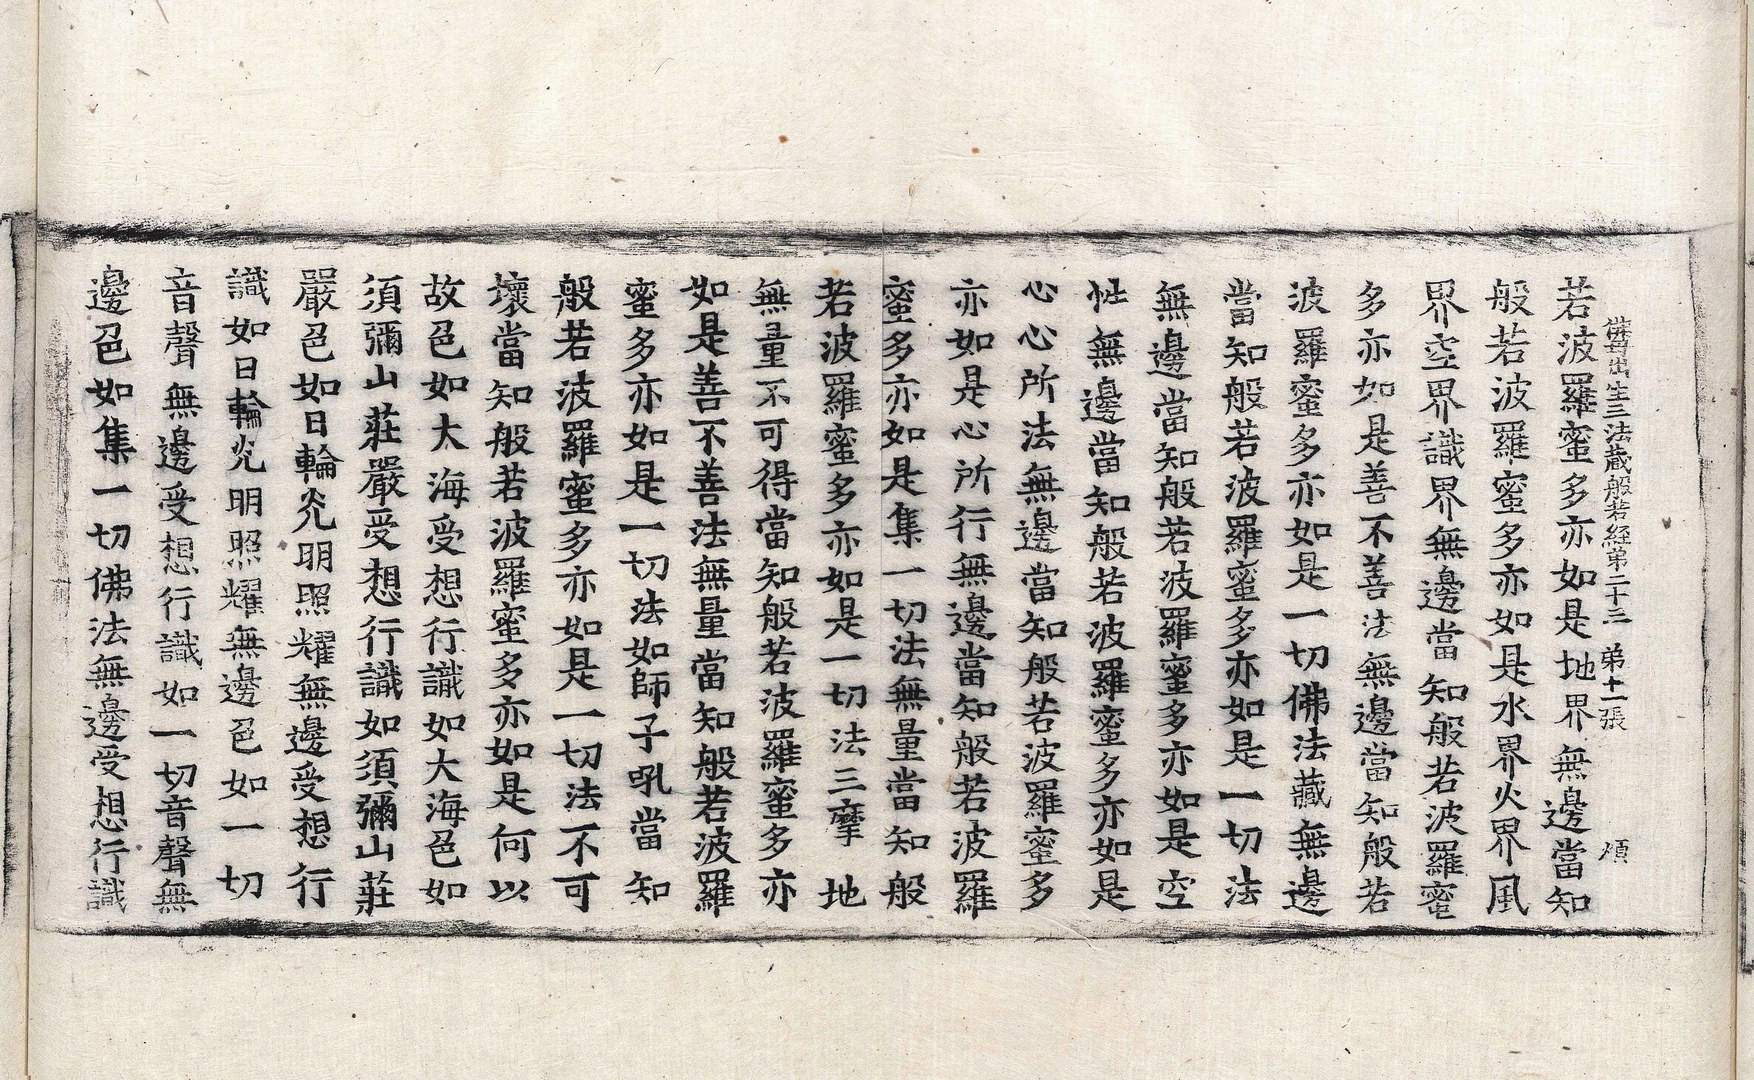 佛母出生三法藏般若經第二十三　第十一張　順
若波羅蜜多亦如是地界無邊當知
般若波羅蜜多亦如是水界火界風
界空界識界無邊當知般若波羅蜜
多亦如是善不善法無邊當知般若
波羅蜜多亦如是一切佛法藏無邊
當知般若波羅蜜多亦如是一切法
無邊當知般若波羅蜜多亦如是空
性無邊當知般若波羅蜜多亦如是
心心所法無邊當知般若波羅蜜多
亦如是心所行無邊當知般若波羅
蜜多亦如是集一切法無量當知般
若波羅蜜多亦如是一切法三摩地
無量不可得當知般若波羅蜜多亦
如是善不善法無量當知般若波羅
蜜多亦如是一切法如師子吼當知
般若波羅蜜多亦如是一切法不可
壞當知般若波羅蜜多亦如是何以
故色如大海受想行識如大海色如
須彌山莊嚴受想行識如須彌山莊
嚴色如日輪光明照耀無邊受想行
識如日輪光明照耀無邊色如一切
音聲無邊受想行識如一切音聲無
邊色如集一切佛法無邊受想行識